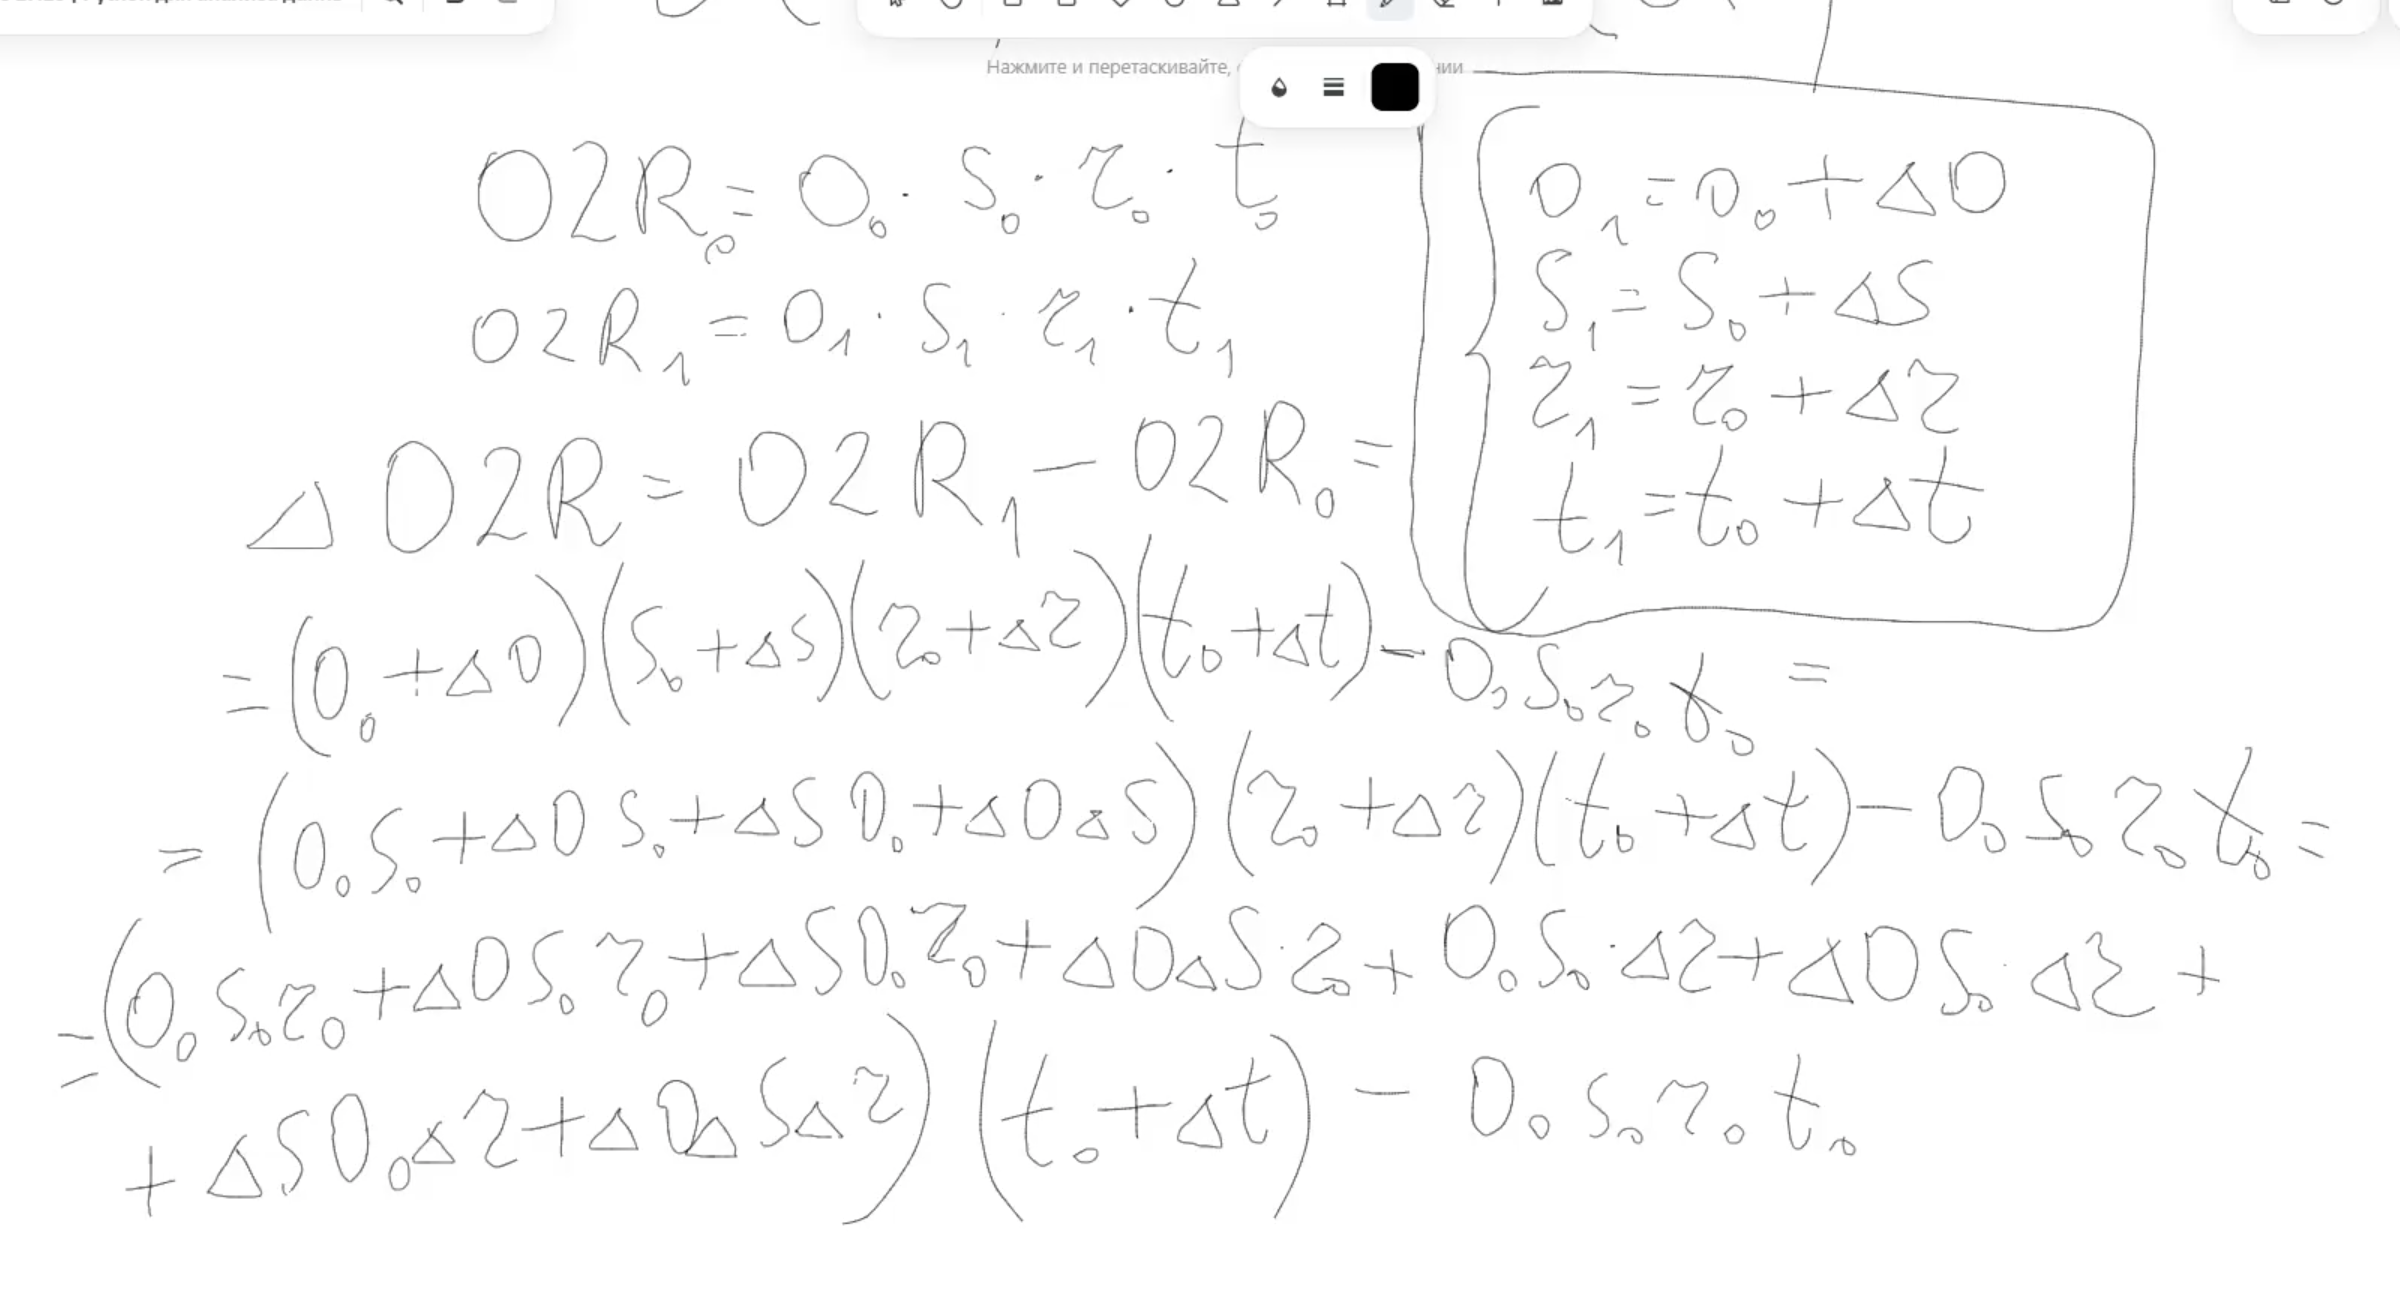 Нажмите и перетаскивайте,
O2R₀ = O₀ · S₀ · r₀ · t₀
O2R₁ = O₁ · S₁ · r₁ · t₁
O₁ = O₀ + ΔO
S₁ = S₀ + ΔS
r₁ = r₀ + Δr
t₁ = t₀ + Δt
ΔO2R = O2R₁ − O2R₀ =
= (O₀ + ΔO)(S₀ + ΔS)(r₀ + Δr)(t₀ + Δt) − O₀S₀r₀t₀ =
= (O₀S₀ + ΔOS₀ + ΔSO₀ + ΔOΔS)(r₀ + Δr)(t₀ + Δt) − O₀S₀r₀t₀ =
= (O₀S₀r₀ + ΔOS₀r₀ + ΔSO₀r₀ + ΔOΔS·r₀ + O₀S₀·Δr + ΔOS₀·Δr +
+ ΔSO₀Δr + ΔOΔSΔr)(t₀ + Δt) − O₀S₀r₀t₀